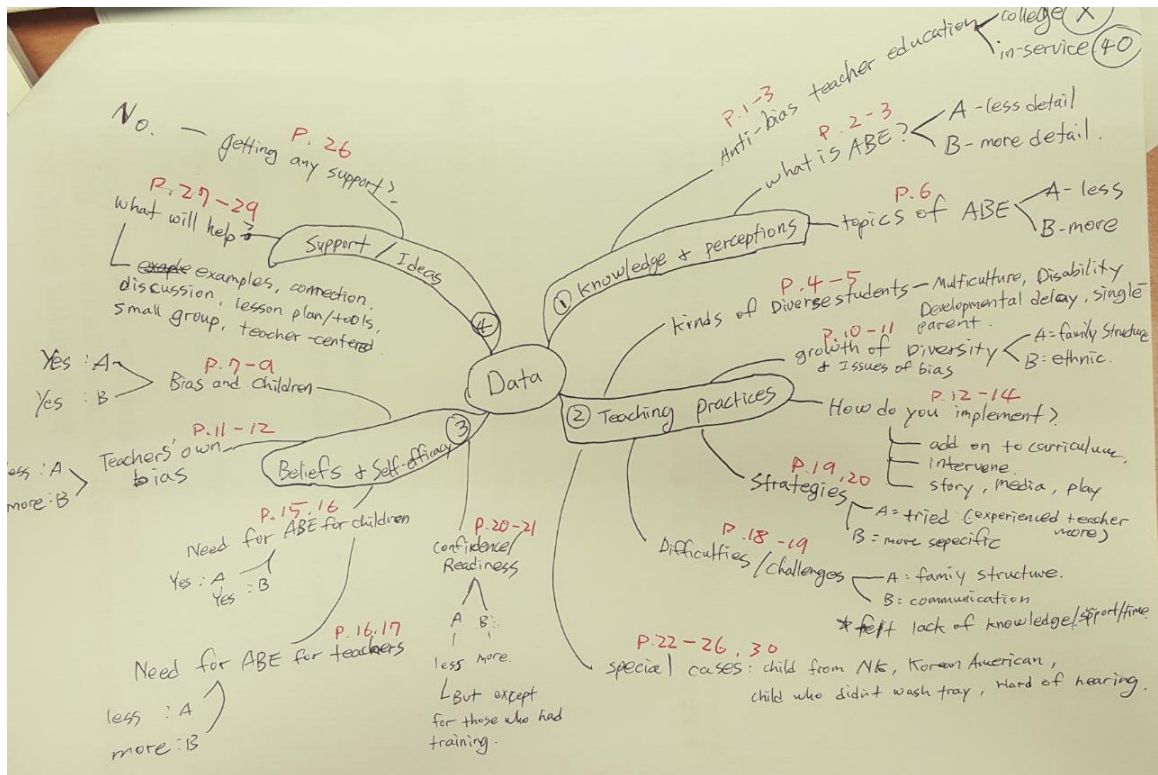 Data
① Knowledge & perceptions
P.1-3
Anti-bias teacher education
college X
in-service 40
P. 2-3
what is ABE?
A -less detail
B- more detail.
P.6
topics of ABE
A- less
B-more
② Teaching practices
P. 4-5
kinds of Diverse students - Multiculture, Disability
Developmental delay, single
parent.
P.10-11
growth of Diversity
& Issues of bias
A= family structure
B= ethnic.
P.12-14
How do you implement?
add on to carriculum,
intervene.
story, media, play
P.19, 20
Strategies
A= tried (experienced teacher
more)
B = more sepecific
P.18-19
Difficulties /challenges
A: family structure.
B: communication
* felt lack of knowledge/spport/time
P.22-26, 30
special cases: child from NK, Korean American,
child who didn't wash tray, Hard of hearing.
③ Beliefs & Self-efficacy
P.7-9
Bias and children
Yes : A
Yes : B
P.11-12
Teachers' own
bias
less : A
more : B
P.15, 16
Need for ABE for children
Yes : A
Yes : B
P.16, 17
Need for ABE for teachers
less : A
more : B
P.20-21
Confidence/
Readiness
A B
less more.
But except
for those who had
training.
④ Support / Ideas
P. 26
getting any support?
No.
P.27-29
what will help?
examples, connection,
discussion, lesson plan/tools,
small group, teacher-centered